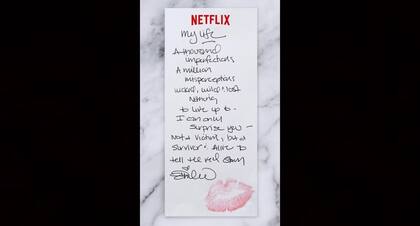 NETFLIX
My life
A thousand
imperfections
A million
misperceptions
wicked, wild & lost
Nothing
to live up to -
I can only
Surprise you -
Not a victim, but a
survivor. Alive to
tell the real story